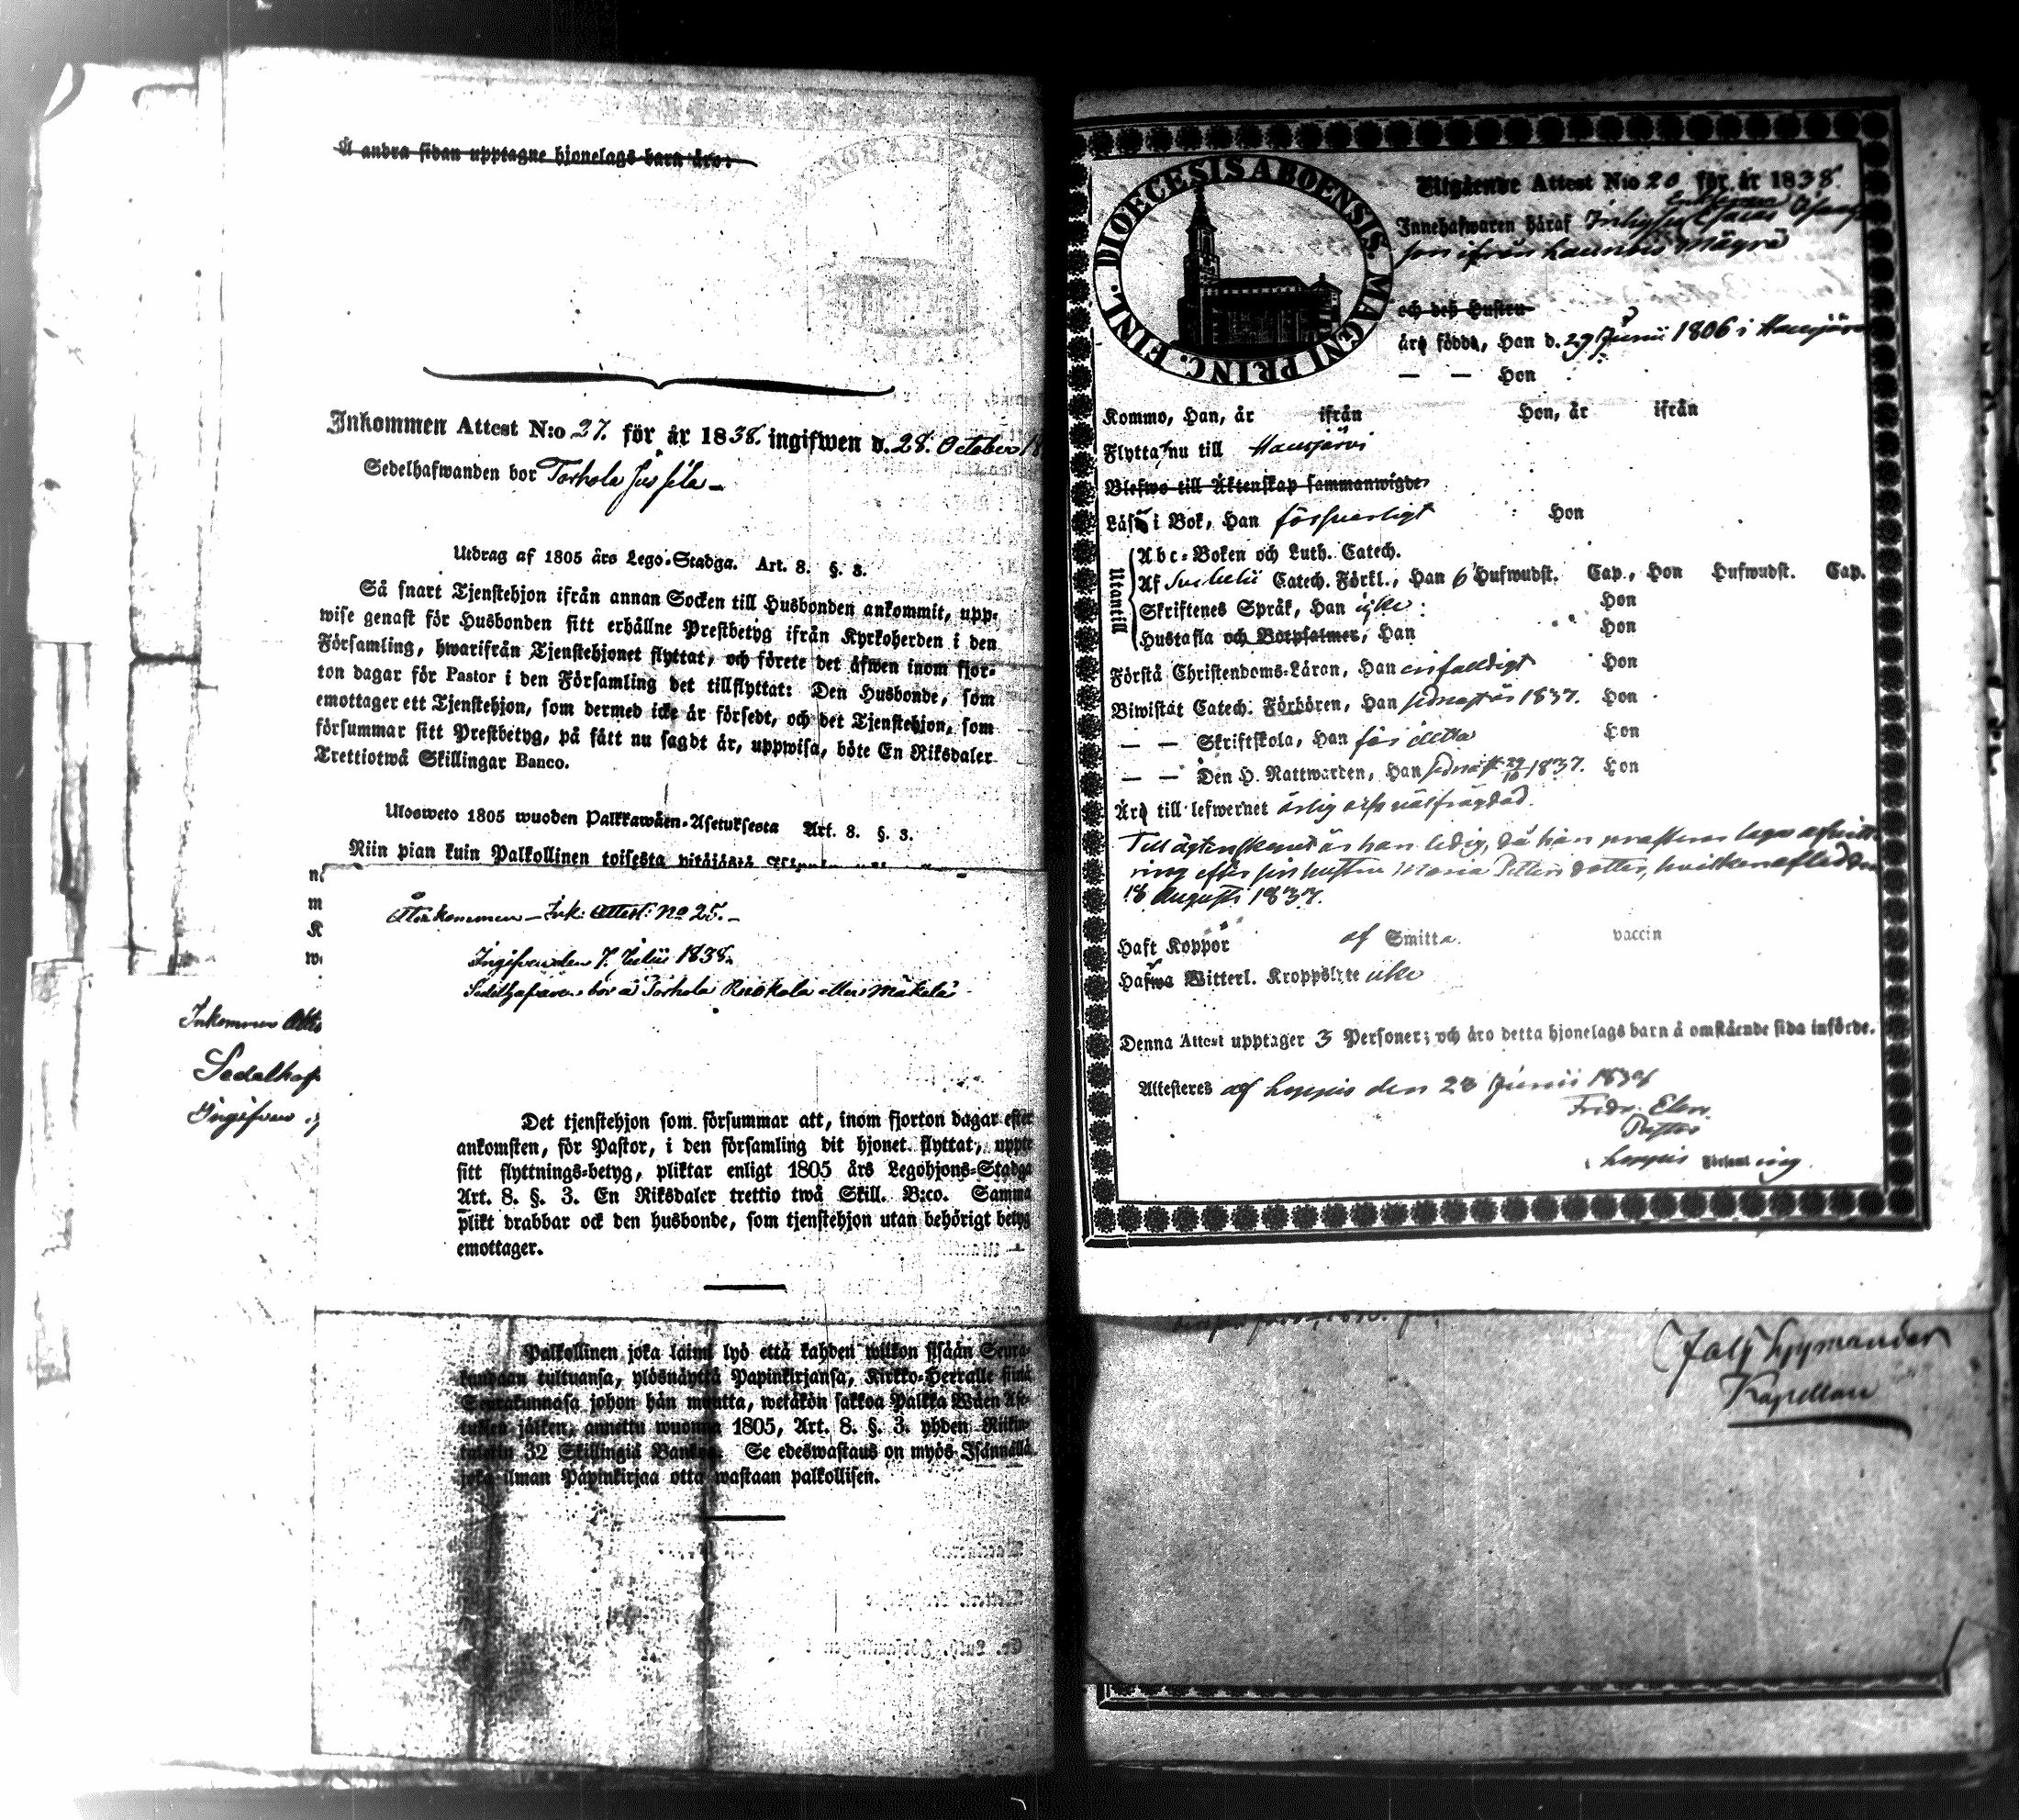 Å andra sidan upptagne hjonelags barn äro:
Inkommen Attest N:o 27. för år 1838. ingifwen d. 28. October
Sedelhafwanden bor Torhola Jussila
Utdrag af 1805 års Lego-Stadga. Art. 8. §. 3.
Så snart Tjenstehjon ifrån annan Socken till Husbonden ankommit, upp-
wise genast för Husbonden sitt erhållne Prestbetyg ifrån Kyrkoherden i den
Församling, hwarifrån Tjenstehjonet flyttat, och förete det äfwen inom fjor-
ton dagar för Pastor i den Församling det tillflyttat: Den Husbonde, som
emottager ett Tjenstehjon, som dermed icke är försedt, och det Tjenstehjon, som
försummar sitt Prestbetyg, på sätt nu sagdt är, uppwisa, böte En Riksdaler
Trettiotwå Skillingar Banco.
Ulosweto 1805 wuoden Palkkawäen-Asetuksesta Art. 8. §. 3.
Niin pian kuin Palkollinen toisesta pitäjästä
Återkommen Ink: Attest: No 25.
Ingifven den 7. Julii 1838.
Sedelhafvaren bor å Torhola Mäkelä
Inkommen
Sedelhaf
Ingifven
Det tjenstehjon som försummar att, inom fjorton dagar efter
ankomsten, för Pastor, i den församling dit hjonet flyttat, uppte
sitt flyttnings-betyg, pliktar enligt 1805 års Legohjons-Stadga
Art. 8. §. 3. En Riksdaler trettio twå Skill. B:co. Samma
plikt drabbar ock den husbonde, som tjenstehjon utan behörigt betyg
emottager.
Palkollinen joka laimi lyö että kahden wiikon sisään Seura-
kundaan tultuansa, ylösnäyttä Papinkirjansa, Kirkko-Herralle siinä
Seurakunnasa johon hän muutta, wetäkön sakkoa Palkka Wäen Ase-
tuksen jälken, annettu wuonna 1805, Art. 8. §. 3. yhden Riikin-
talarin 32 Skillingiä Bankos. Se edeswastaus on myös Isännällä
joka ilman Papinkirjaa otta wastaan palkollisen.
DIOECESIS ABOENSIS. MAGNI PRINC. FINL.
Utgående Attest N:o 20 för år 1838.
Innehafwaren häraf Inhyses
son ifrån Läyliäis Mäyrä
och dess Hustru
äro födde, Han d. 29 Junii 1806 i Hausjärvi
— — Hon
Kommo, Han, år ifrån Hon, år ifrån
Flytta nu till Hausjärvi
Blefwo till Äktenskap sammanwigde
Läsa i Bok, Han försvarligt Hon
Utantill
Abc-Boken och Luth. Catech.
Af Svebelii Catech. Förkl., Han 6 Hufwudst. Cap., Hon Hufwudst. Cap.
Skriftenes Språk, Han icke Hon
Hustafla och Botpsalmer, Han Hon
Förstå Christendoms-Läran, Han enfaldigt Hon
Biwistat Catech. Förhören, Han sednast år 1837. Hon
— — Skriftskola, Han för detta Hon
— — Den H. Nattwarden, Han sednast 29/10 1837. Hon
Äro till lefwernet ärlig och välfrägdad.
Till ägtenskapet är han ledig, då han præsterar laga afvitt-
ring efter sin hustru Maria Petters dotter, hvilken afled den
18 Augusti 1837.
Haft Koppor af Smitta. vaccin
Hafwa Witterl. Kroppslyte icke
Denna Attest upptager 3 Personer; och äro detta hjonelags barn å omstående sida införde.
Attesteres af Loppis den 28 Junii 1838
Fredr. Elen
Pastor
Loppis Församling
Kapellan